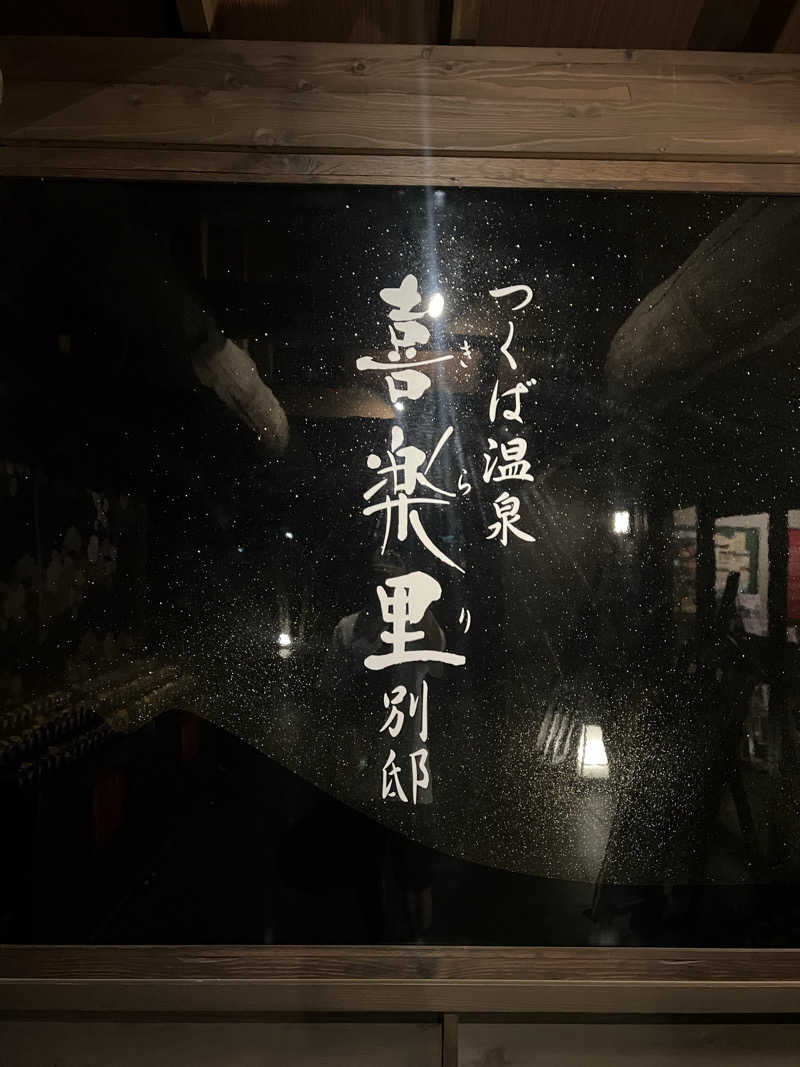 つくば温泉
喜楽里別邸
きらり